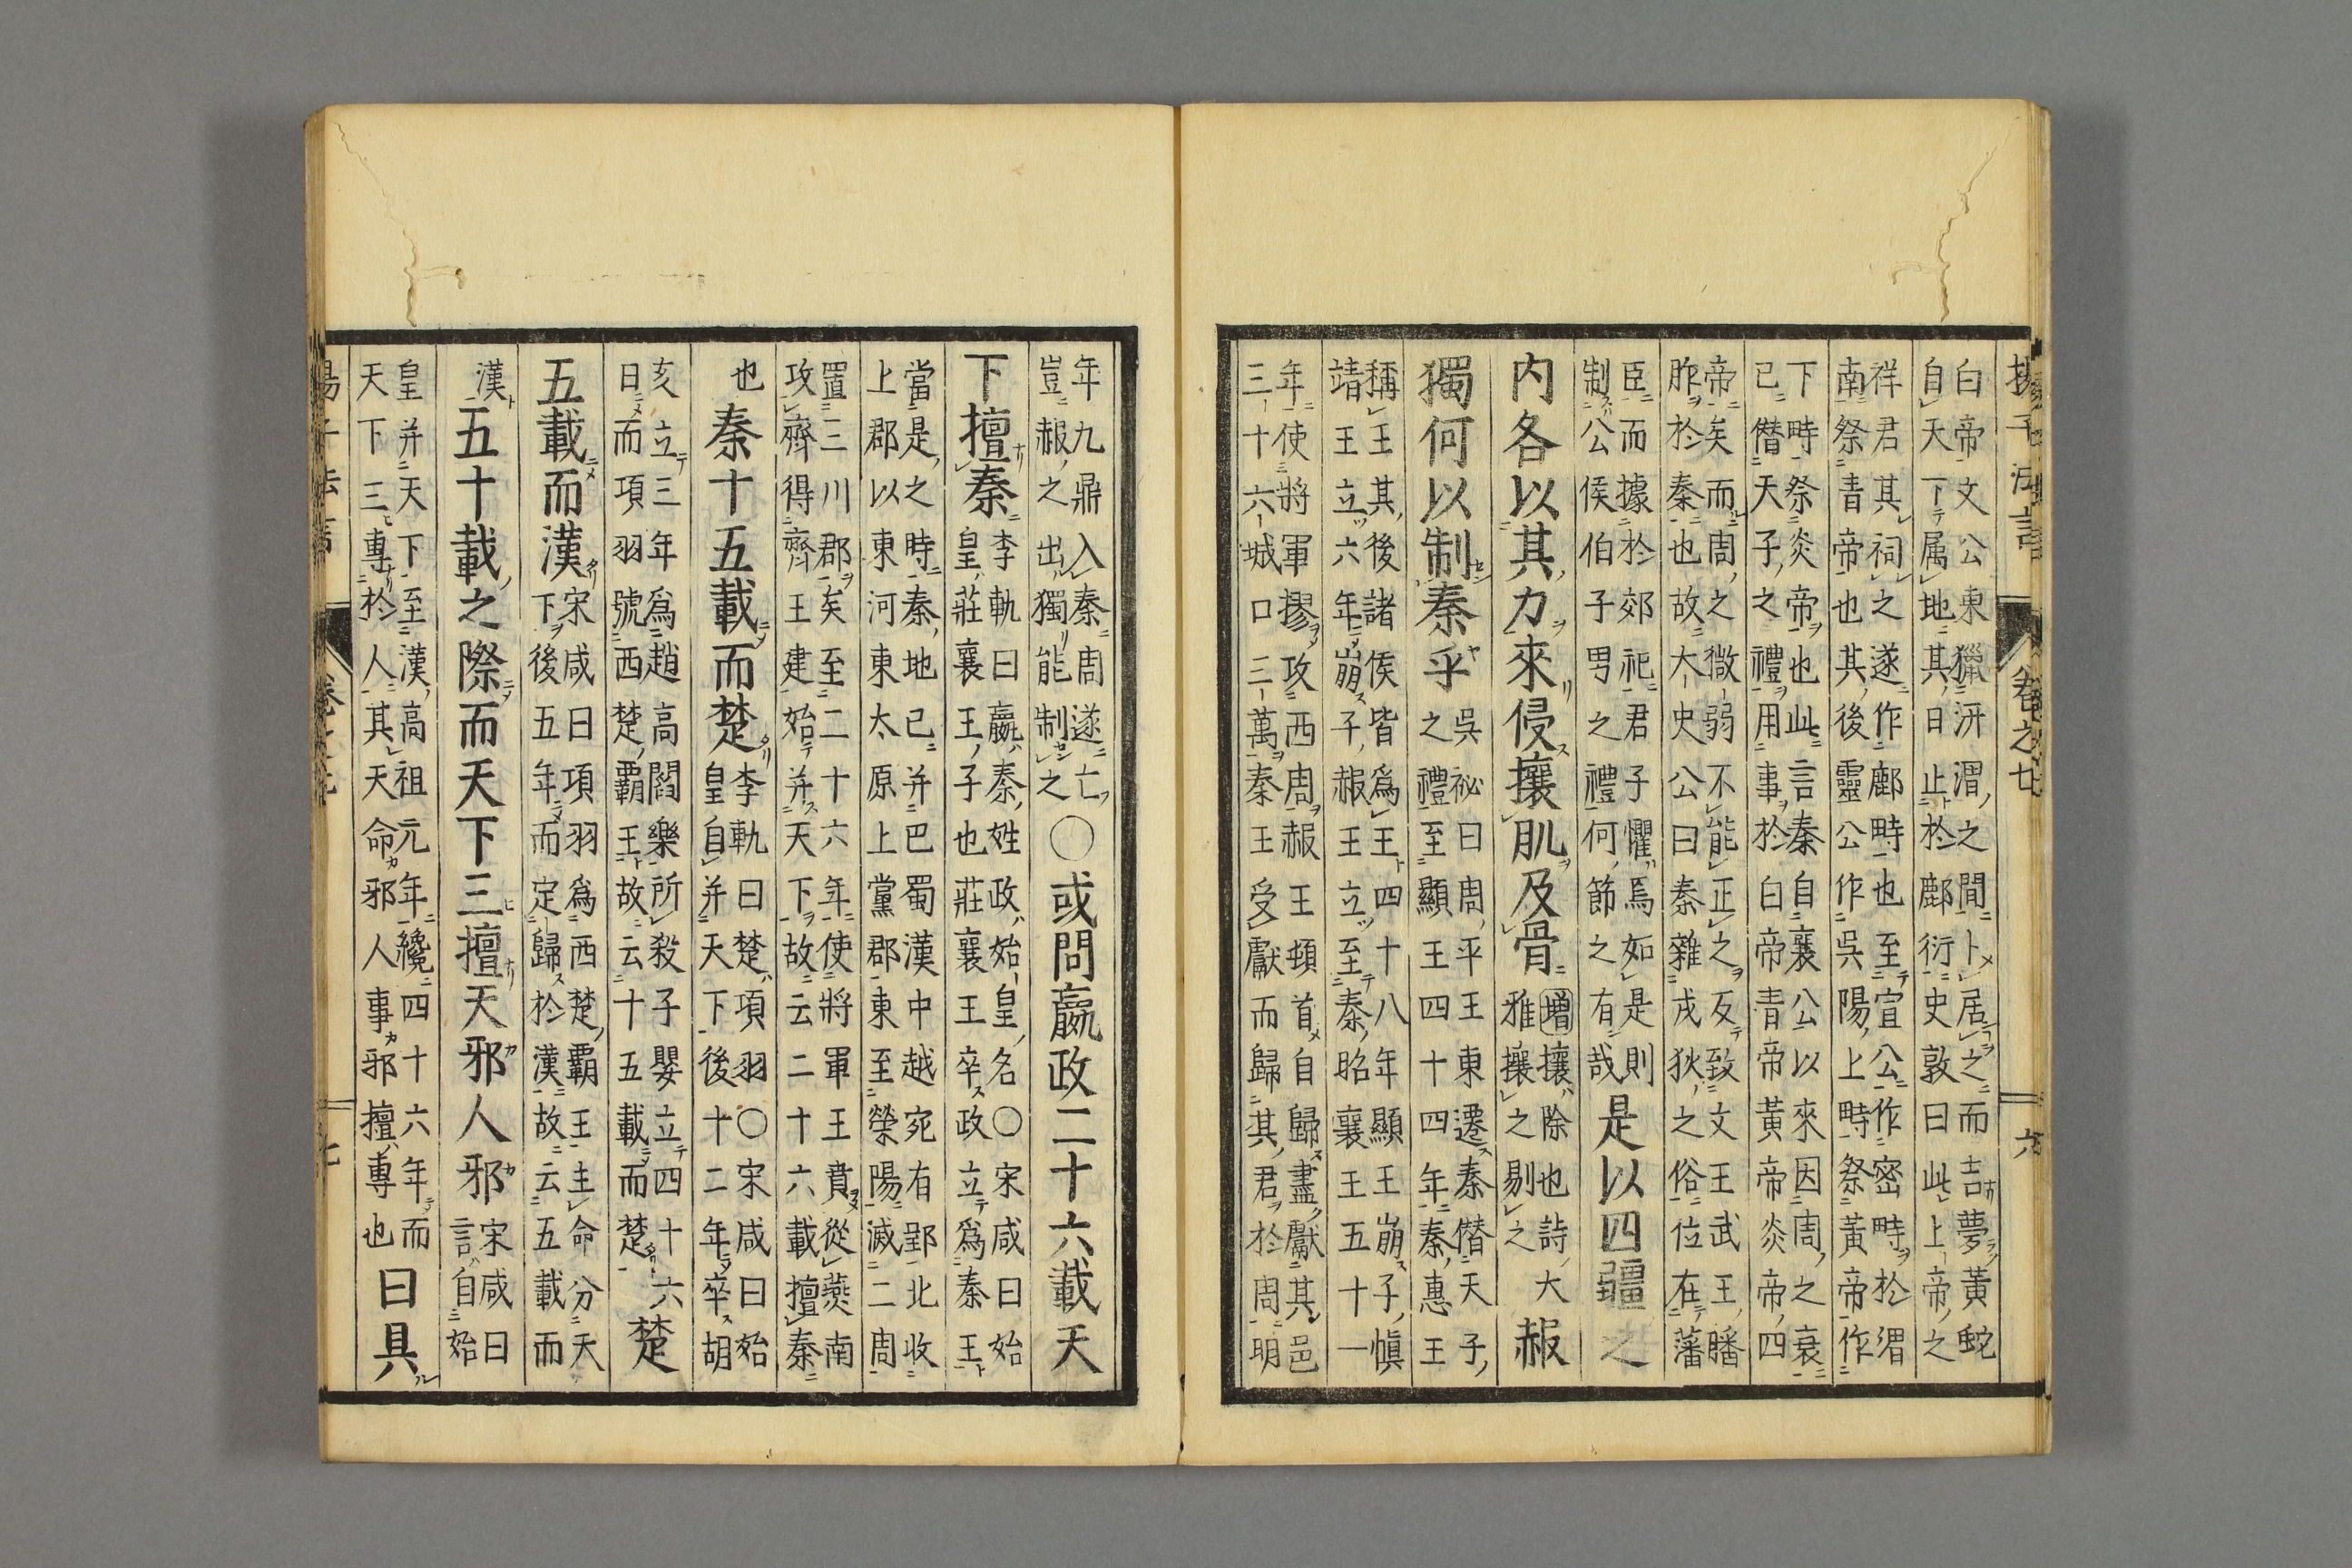 揚子法言 卷之七 六
白帝文公東獵汧渭之間卜居之而吉夢黃蛇
自天下属地其日止於鄜衍史敦曰此上帝之
祥君其祠之遂作鄜畤也至宣公作密畤於渭
南祭青帝也其後靈公作吳陽上畤祭黃帝作
下畤祭炎帝也此言秦自襄公以來因周之衰
已僭天子之禮用事於白帝青帝黃帝炎帝四
帝矣而周之微弱不能正之反致文王武王膰
胙於秦也故太史公曰秦雜戎狄之俗位在藩
臣而據於郊祀君子懼焉如是則
制公侯伯子男之禮何節之有哉
是以四疆之
内各以其力來侵攘肌及骨
增攘除也詩大
雅攘之剔之
赧
獨何以制秦乎
吳祕曰周平王東遷秦僭天子
之禮至顯王四十四年秦惠王
稱王其後諸侯皆爲王四十八年顯王崩子愼
靖王立六年崩子赧王立至秦昭襄王五十一
年使將軍摎攻西周赧王頓首自歸盡獻其邑
三十六城口三萬秦王受獻而歸其君於周明
年九鼎入秦周遂亡
豈赧之出獨能制之
○或問嬴政二十六載天
下擅秦
李軌曰嬴秦姓政始皇名○宋咸曰始
皇莊襄王子也莊襄王卒政立爲秦王
當是之時秦地已并巴蜀漢中越宛有郢北收
上郡以東河東太原上黨郡東至滎陽滅二周
置三川郡矣至二十六年使將軍王賁從燕南
攻齊得齊王建始并天下故云二十六載擅秦
也
秦十五載而楚
李軌曰楚項羽○宋咸曰始
皇自并天下後十二年卒胡
亥立三年爲趙高閻樂所殺子嬰立四十六
日而項羽號西楚霸王故云十五載而楚
楚
五載而漢
宋咸曰項羽爲西楚霸王主命分天
下後五年而定歸於漢故云五載而
漢
五十載之際而天下三擅天邪人邪
宋咸曰
言自始
皇并天下至漢高祖元年纔四十六年而
天下三專於人其天命邪人事邪擅專也
曰具